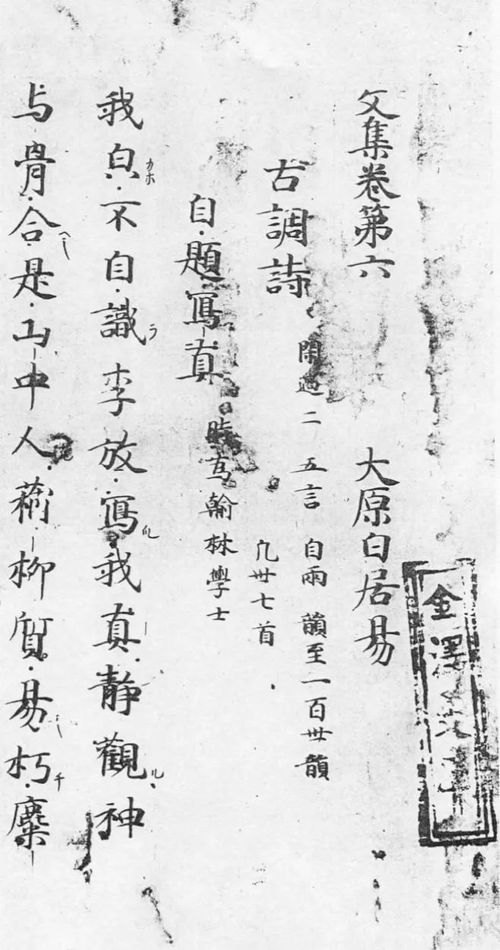 金澤文庫
文集卷第六 大原白居易
古調詩 閑適二 五言 自兩韻至一百卅韻
凡卅七首
自題寫真 時爲翰林學士
我皃不自識李放寫我真靜觀神
与骨合是山中人蒲柳質易朽麋